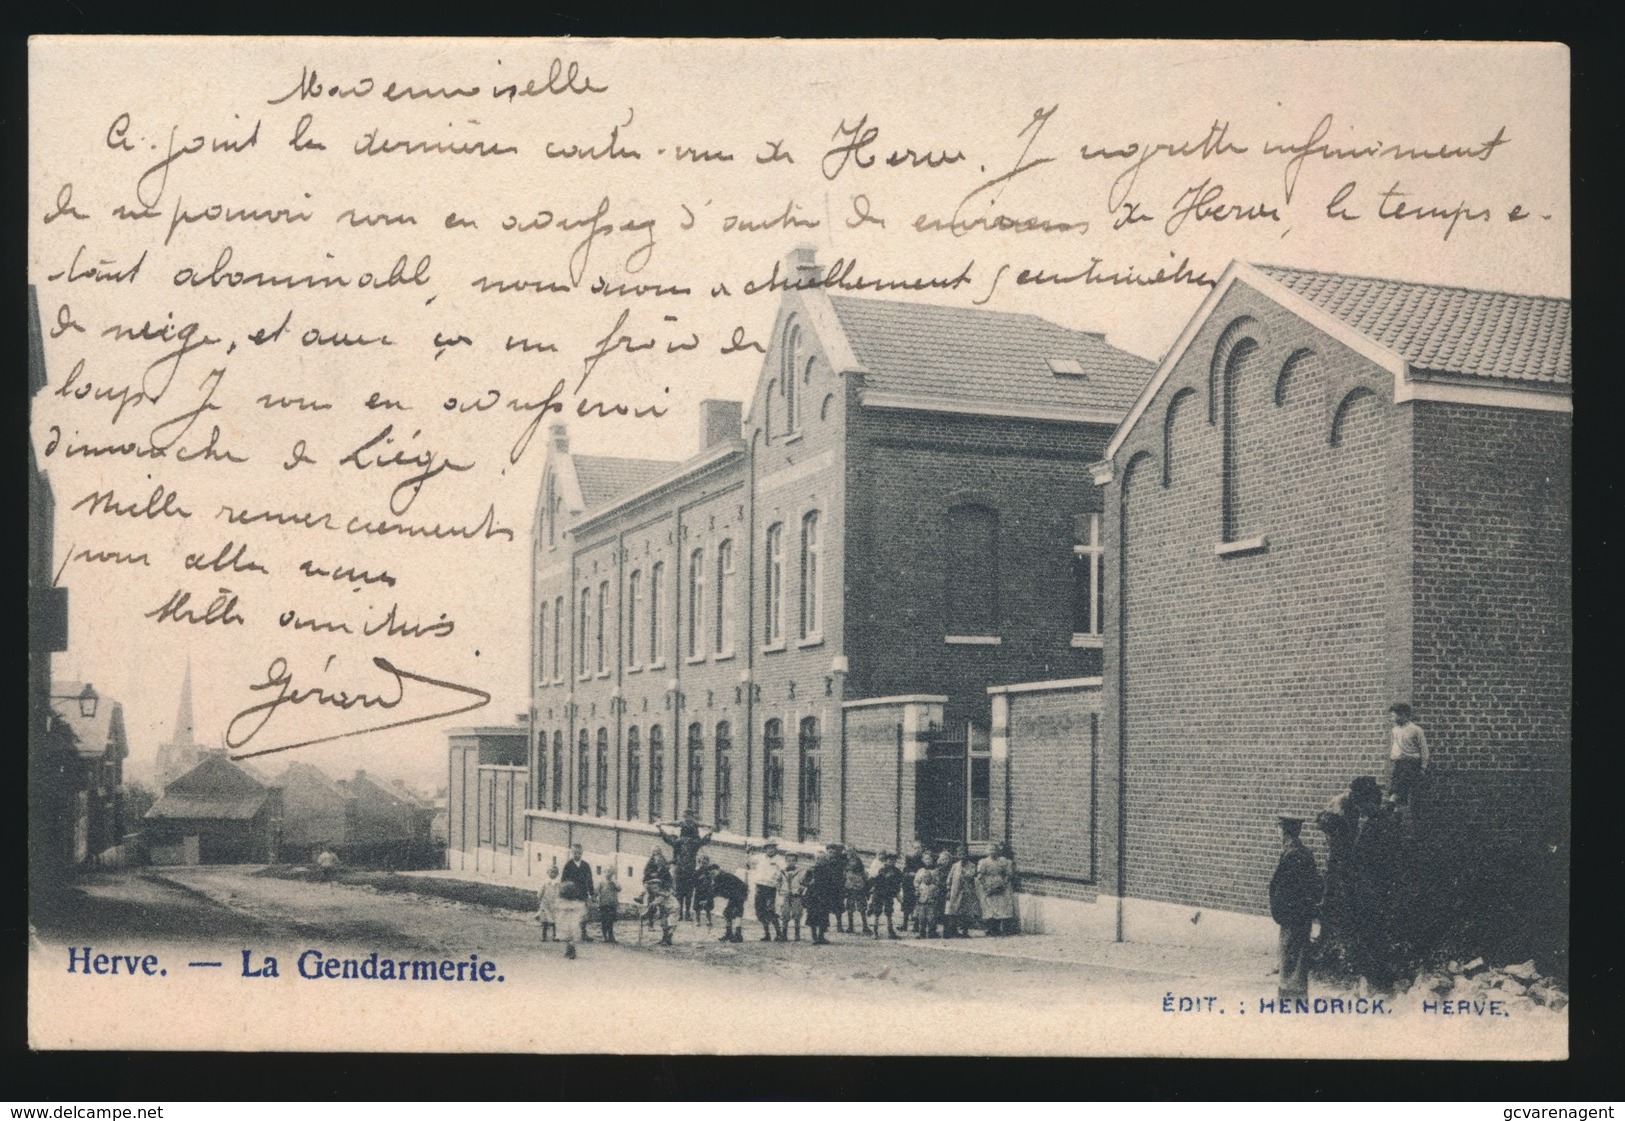 Mademoiselle
Ci-joint les dernières cartes-vue de Herve. Je regrette infiniment
de ne pouvoir vous en adresser d'autres des environs de Herve, le temps é-
tant abominable, nous avons actuellement 5 centimètres
de neige, et avec ça un froid de
loup. Je vous en adresserai
dimanche de Liége.
Mille remerciements
pour
Mille amitiés
Gérard
Herve. — La Gendarmerie.
ÉDIT. : HENDRICK. HERVE.
www.delcampe.net
gcvarenagent